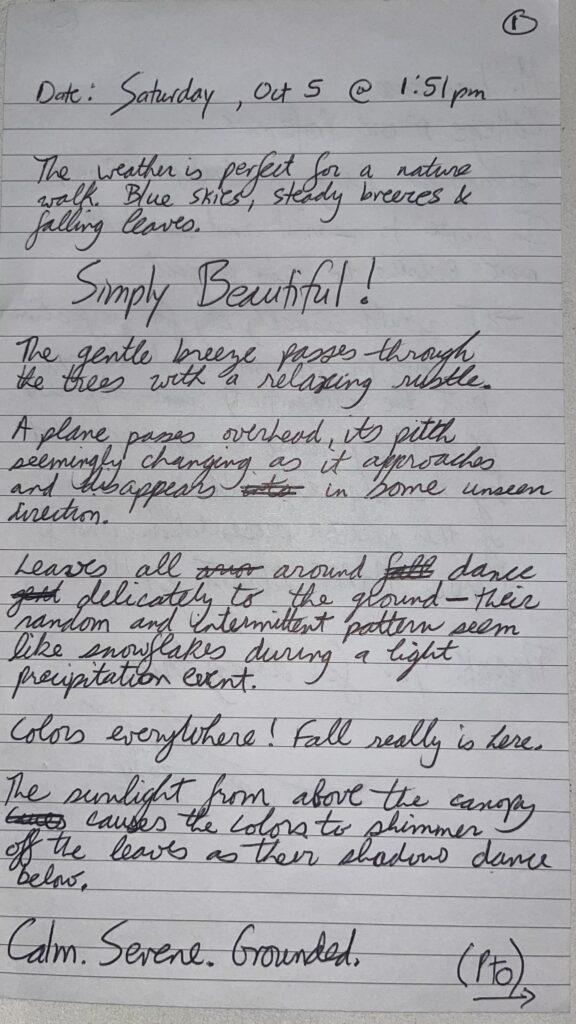 1
Date: Saturday, Oct 5 @ 1:51pm
The weather is perfect for a nature
walk. Blue skies, steady breezes &
falling leaves.
Simply Beautiful!
The gentle breeze passes through
the trees with a relaxing rustle.
A plane passes overhead, its pitch
seemingly changing as it approaches
and disappears in some unseen
direction.
Leaves all around dance
delicately to the ground – their
random and intermittent pattern seem
like snowflakes during a light
precipitation event.
Colors everywhere! Fall really is here.
The sunlight from above the canopy
causes the colors to shimmer
off the leaves as their shadows dance
below.
Calm. Serene. Grounded.
(PTO)